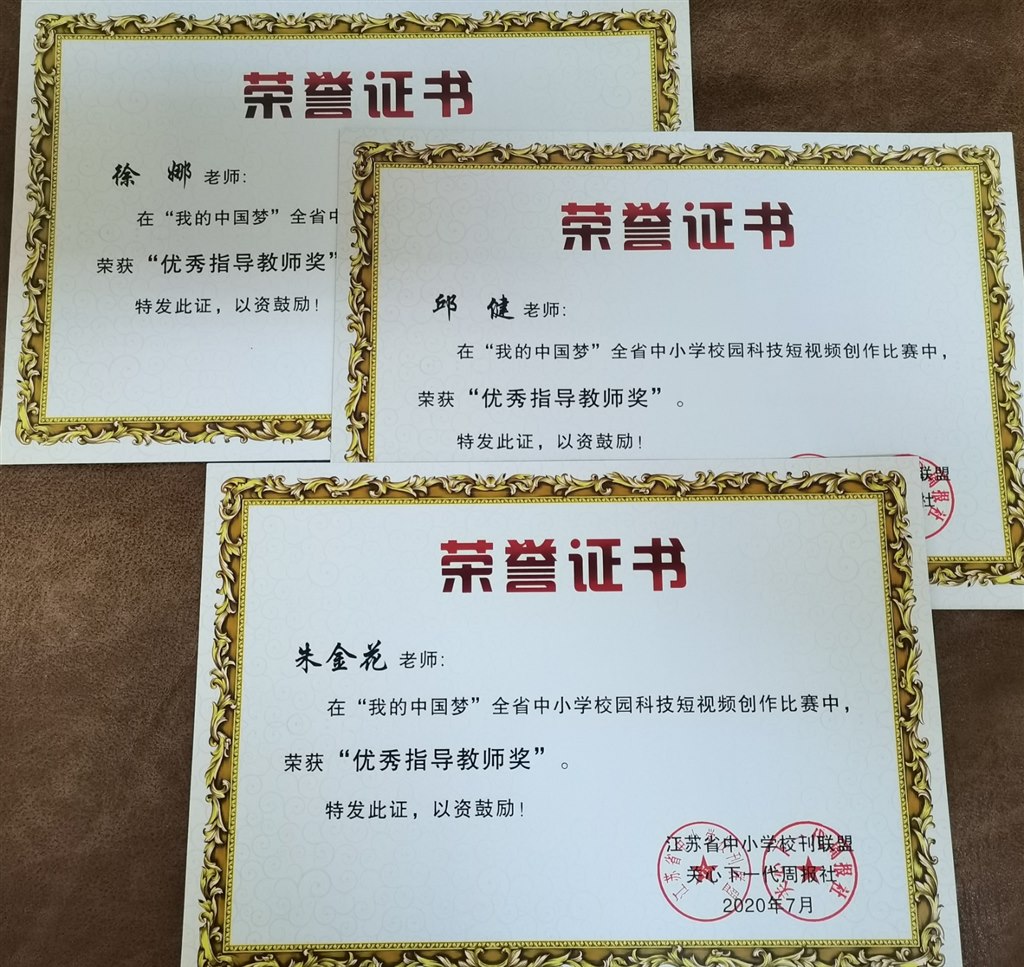 荣誉证书
徐 娜 老师:
在“我的中国梦”全省中
荣获“优秀指导教师奖”
特发此证，以资鼓励！
荣誉证书
邱 健 老师:
在“我的中国梦”全省中小学校园科技短视频创作比赛中，
荣获“优秀指导教师奖”。
特发此证，以资鼓励！
联盟
社
荣誉证书
朱金花 老师:
在“我的中国梦”全省中小学校园科技短视频创作比赛中，
荣获“优秀指导教师奖”。
特发此证，以资鼓励！
江苏省中小学校刊联盟
关心下一代周报社
2020年7月